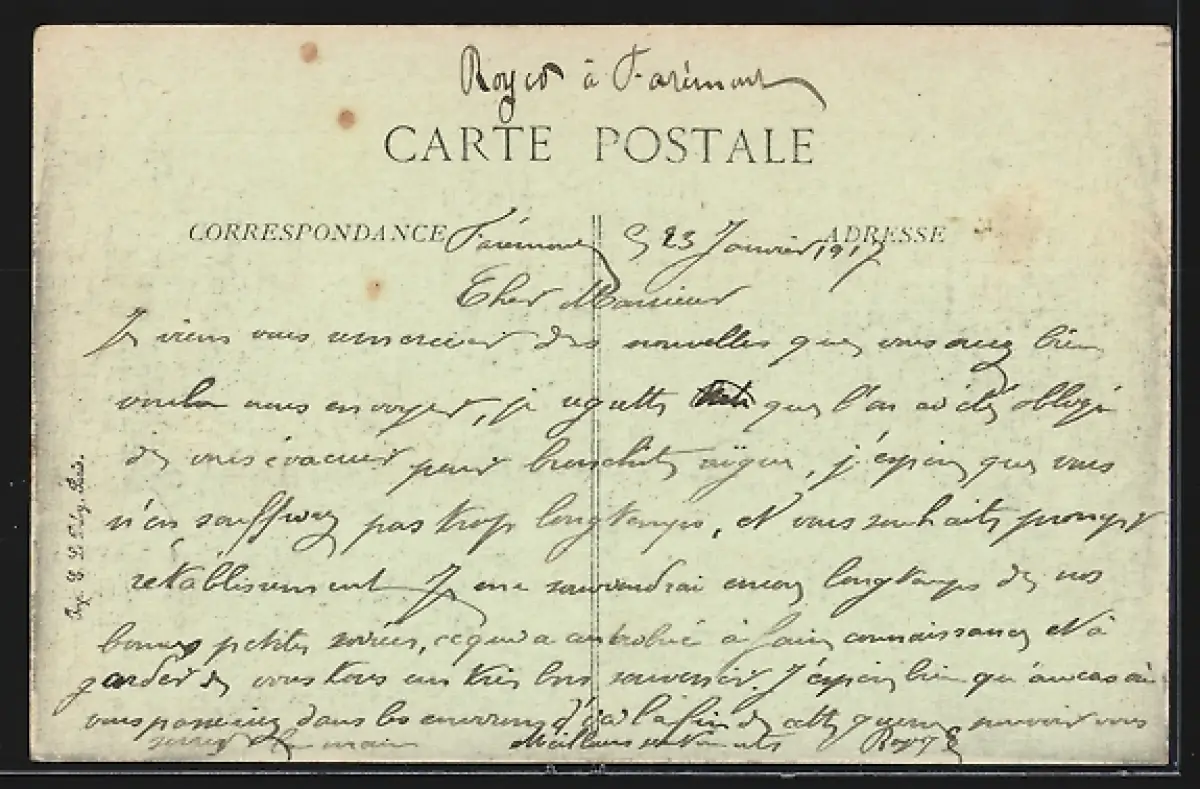 Royer à Farémont
CARTE POSTALE
CORRESPONDANCE
ADRESSE
Farémont 23 Janvier 1917
Cher Monsieur
Je viens vous remercier des nouvelles que vous avez bien
voulu nous envoyer, je regrette que l'on ai été obligé
de vous évacuer pour bronchite aïgue, j'espère que vous
n'en souffrirez pas trop longtemps, et vous souhaite prompt
rétablissement Je me souviendrai encore longtemps de nos
bonnes petites soirées, ce qui a contribué à faire connaissance et à
garder de vous tous un très bon souvenir. J'espère bien qu'au cas où
vous passeriez dans les environs d'ici la fin de cette guerre pouvoir vous
serrer la main Meilleurs sentiments Royer